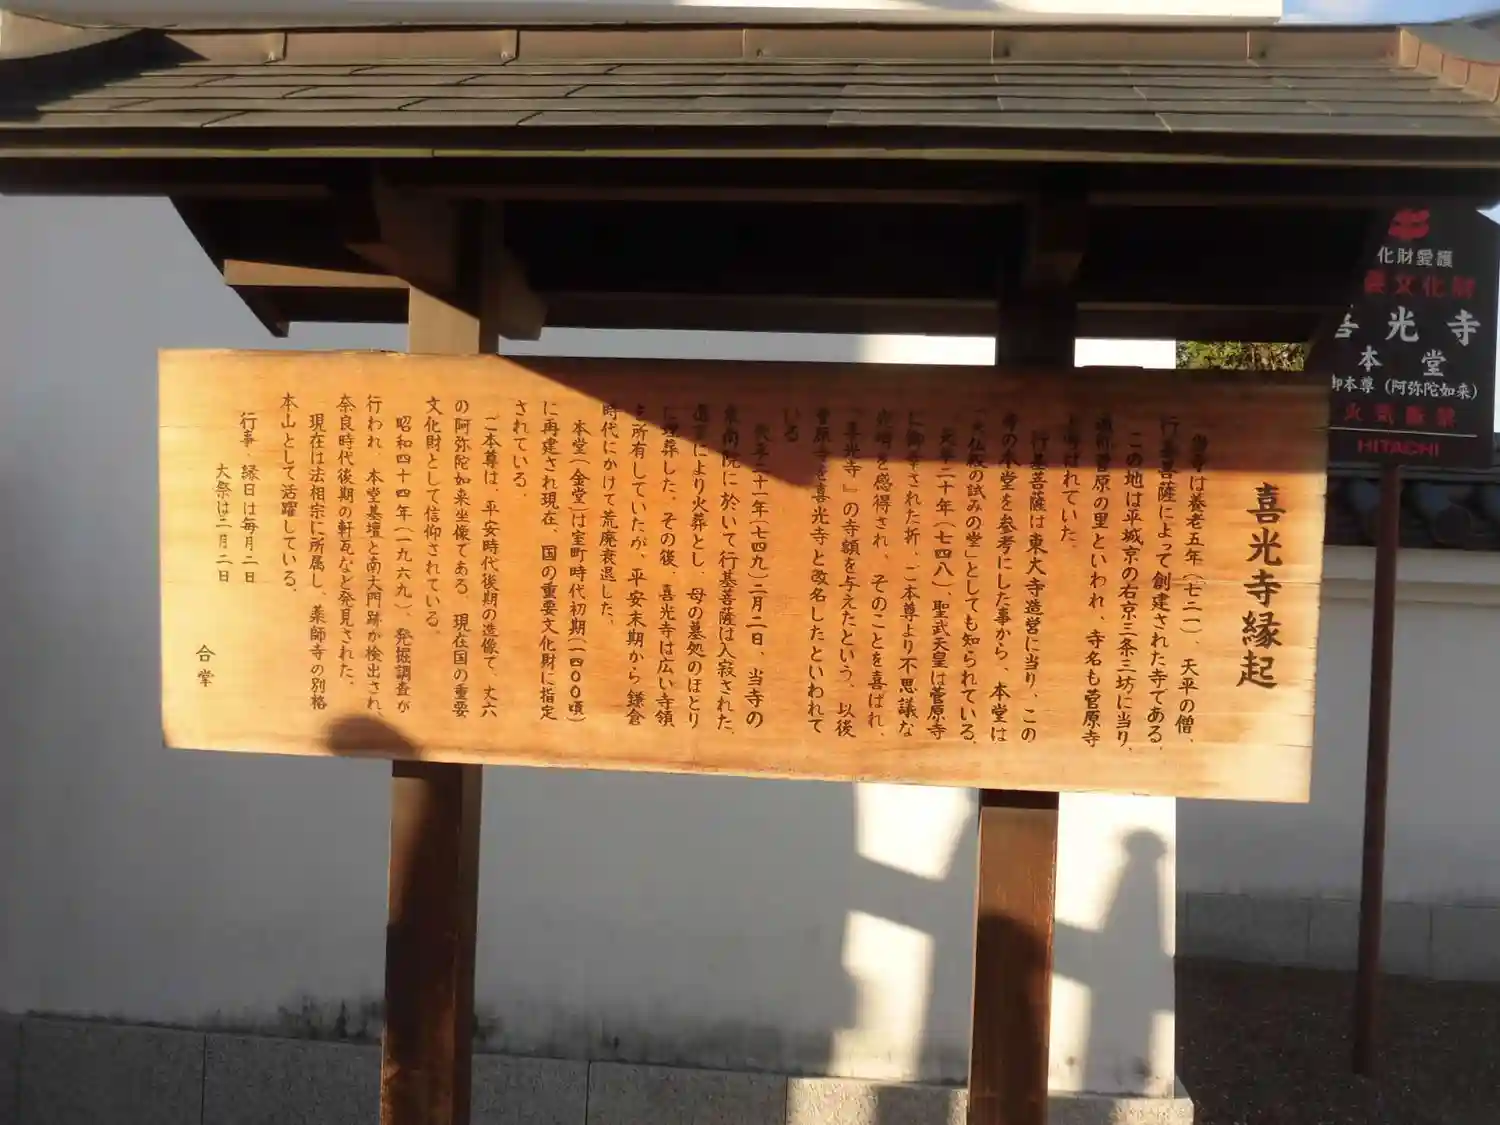 喜光寺縁起
当寺は養老五年(七二一)、天平の僧、
行基菩薩によって創建された寺である。
この地は平城京の右京三条三坊に当り、
菅原の里といわれ、寺名も菅原寺
と呼ばれていた。
行基菩薩は東大寺造営に当り、この
寺の本堂を参考にした事から、本堂は
「大仏殿の試みの堂」としても知られている。
天平二十年(七四八)、聖武天皇は菅原寺
に御幸された折、ご本尊より不思議な
光明を感得され、そのことを喜ばれ、
「喜光寺」の寺額を与えたという。以後
菅原寺を喜光寺と改名したといわれて
いる
天平二十一年(七四九)二月二日、当寺の
東南院に於いて行基菩薩は入寂された。
遺言により火葬とし、母の墓処のほとり
に埋葬した。その後、喜光寺は広い寺領
を所有していたが、平安末期から鎌倉
時代にかけて荒廃衰退した。
本堂(金堂)は室町時代初期(一四〇〇頃)
に再建され現在、国の重要文化財に指定
されている。
ご本尊は、平安時代後期の造像で、丈六
の阿弥陀如来坐像である。現在国の重要
文化財として信仰されている。
昭和四十四年(一九六九)、発掘調査が
行われ、本堂基壇と南大門跡が検出され、
奈良時代後期の軒瓦など発見された。
現在は法相宗に所属し、薬師寺の別格
本山として活躍している。
行事、縁日は毎月二日
大祭は三月二日
合掌
化財愛護
文化財
喜光寺
本堂
御本尊(阿弥陀如来)
火気厳禁
HITACHI